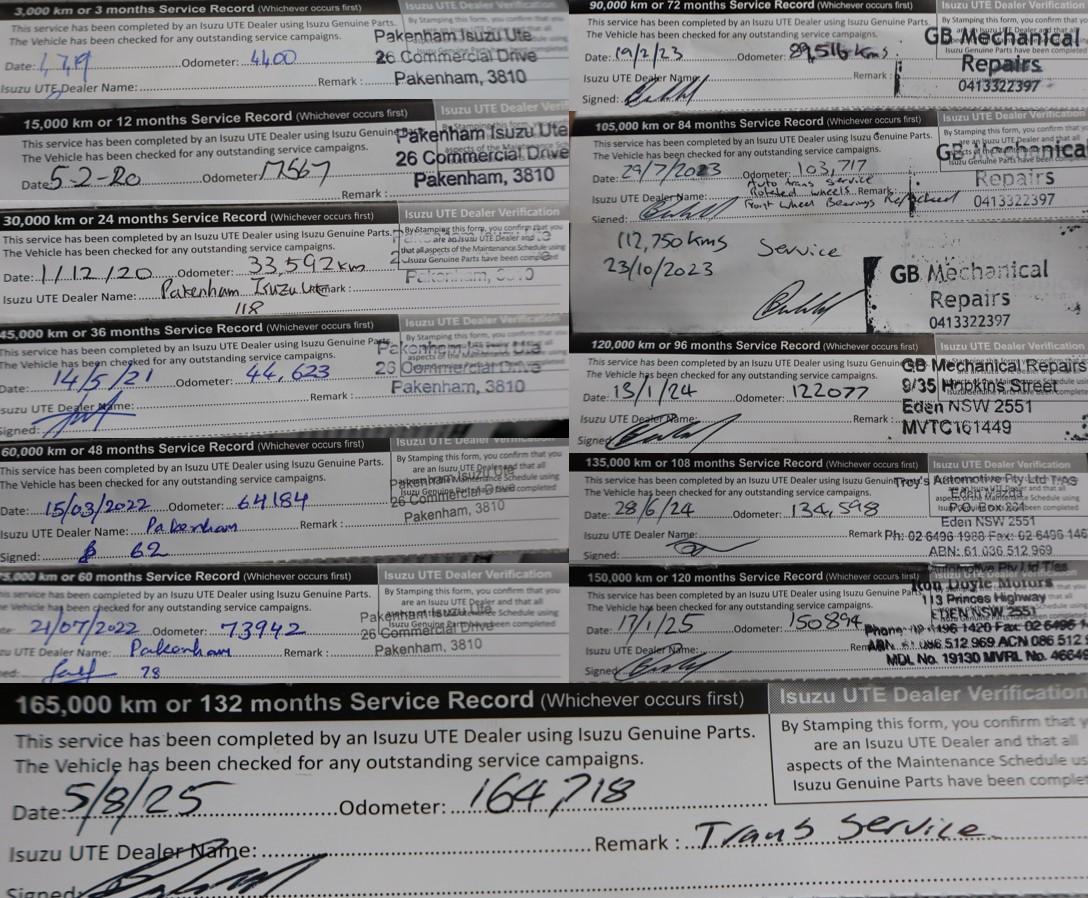 3,000 km or 3 months Service Record (Whichever occurs first)
This service has been completed by an Isuzu UTE Dealer using Isuzu Genuine Parts.
The Vehicle has been checked for any outstanding service campaigns.
Date: Odometer: 4400
Isuzu UTE Dealer Name: Remark :
Isuzu UTE Dealer Verification
Pakenham Isuzu Ute
26 Commercial Drive
Pakenham, 3810
15,000 km or 12 months Service Record (Whichever occurs first)
This service has been completed by an Isuzu UTE Dealer using Isuzu Genuine
The Vehicle has been checked for any outstanding service campaigns.
Date: 5-2-20 Odometer 17567
Remark :
Isuzu UTE Dealer Veri
Pakenham Isuzu Ute
26 Commercial Drive
Pakenham, 3810
30,000 km or 24 months Service Record (Whichever occurs first)
This service has been completed by an Isuzu UTE Dealer using Isuzu Genuine Parts.
The Vehicle has been checked for any outstanding service campaigns.
Date: 1/12/20 Odometer: 33,592km
Isuzu UTE Dealer Name: Pakenham Isuzu Ute
118
Isuzu UTE Dealer Verification
By Stamping this form, you confirm that you
are an Isuzu UTE Dealer and
that all aspects of the Maintenance Schedule using
Isuzu Genuine Parts have been completed
45,000 km or 36 months Service Record (Whichever occurs first)
This service has been completed by an Isuzu UTE Dealer using Isuzu Genuine Parts
The Vehicle has been checked for any outstanding service campaigns.
Date: 14/5/21 Odometer: 44,623
Isuzu UTE Dealer Name: Remark :
Signed:
Isuzu UTE Dealer Verification
Pakenham Isuzu Ute
26 Commercial Drive
Pakenham, 3810
60,000 km or 48 months Service Record (Whichever occurs first)
This service has been completed by an Isuzu UTE Dealer using Isuzu Genuine Parts.
The Vehicle has been checked for any outstanding service campaigns.
Date: 15/03/2022 Odometer: 64184
Isuzu UTE Dealer Name: Pakenham Remark :
Signed: 62
Isuzu UTE Dealer Verification
By Stamping this form, you confirm that you
are an Isuzu UTE Dealer and that all
Pakenham Isuzu Ute
26 Commercial Drive
Pakenham, 3810
75,000 km or 60 months Service Record (Whichever occurs first)
This service has been completed by an Isuzu UTE Dealer using Isuzu Genuine Parts.
The Vehicle has been checked for any outstanding service campaigns.
21/07/2022 Odometer: 73942
UTE Dealer Name: Pakenham Remark :
78
Isuzu UTE Dealer Verification
By Stamping this form, you confirm that you
are an Isuzu UTE Dealer and that all
Pakenham Isuzu Ute
26 Commercial Drive
Pakenham, 3810
90,000 km or 72 months Service Record (Whichever occurs first)
This service has been completed by an Isuzu UTE Dealer using Isuzu Genuine Parts.
The Vehicle has been checked for any outstanding service campaigns.
Date: 19/2/23 Odometer: 89,516 kms
Isuzu UTE Dealer Name: Remark :
Signed:
Isuzu UTE Dealer Verification
By Stamping this form, you confirm that you
GB Mechanical
Repairs
0413322397
105,000 km or 84 months Service Record (Whichever occurs first)
This service has been completed by an Isuzu UTE Dealer using Isuzu Genuine Parts.
The Vehicle has been checked for any outstanding service campaigns.
Date: 29/7/2023 Odometer: 103,717
Auto trans service
Isuzu UTE Dealer Name: Rotated wheels Remark:
Signed: Front Wheel Bearings Re/packed
Isuzu UTE Dealer Verification
By Stamping this form, you confirm that you
GB Mechanical
Repairs
0413322397
112,750 kms Service
23/10/2023
GB Mechanical
Repairs
0413322397
120,000 km or 96 months Service Record (Whichever occurs first)
This service has been completed by an Isuzu UTE Dealer using Isuzu Genuine
The Vehicle has been checked for any outstanding service campaigns.
Date: 13/1/24 Odometer: 122077
Isuzu UTE Dealer Name: Remark :
Signed
Isuzu UTE Dealer Verification
GB Mechanical Repairs
9/35 Hopkins Street
Eden NSW 2551
MVTC161449
135,000 km or 108 months Service Record (Whichever occurs first)
This service has been completed by an Isuzu UTE Dealer using Isuzu Genuine
The Vehicle has been checked for any outstanding service campaigns.
Date: 28/6/24 Odometer: 134,598
Isuzu UTE Dealer Name: Remark
Signed:
Isuzu UTE Dealer Verification
Troy's Automotive Pty Ltd T/AS
Eden Mazda
Eden NSW 2551
Ph: 02 6496 1988 Fax: 02 6496 146
ABN: 61 086 512 969
150,000 km or 120 months Service Record (Whichever occurs first)
This service has been completed by an Isuzu UTE Dealer using Isuzu Genuine Parts
The Vehicle has been checked for any outstanding service campaigns.
Date: 17/1/25 Odometer: 150894
Isuzu UTE Dealer Name:
Signed
Ron Doyle Motors
113 Princes Highway
EDEN NSW 2551
1420 Fax: 02 6496 1
512 969 ACN 086 512
MDL No. 19130 MVRL No. 46649
165,000 km or 132 months Service Record (Whichever occurs first)
This service has been completed by an Isuzu UTE Dealer using Isuzu Genuine Parts.
The Vehicle has been checked for any outstanding service campaigns.
Date: 5/8/25 Odometer: 164,718
Isuzu UTE Dealer Name: Remark : Trans Service
Signed:
Isuzu UTE Dealer Verification
By Stamping this form, you confirm that y
are an Isuzu UTE Dealer and that all
aspects of the Maintenance Schedule us
Isuzu Genuine Parts have been complet